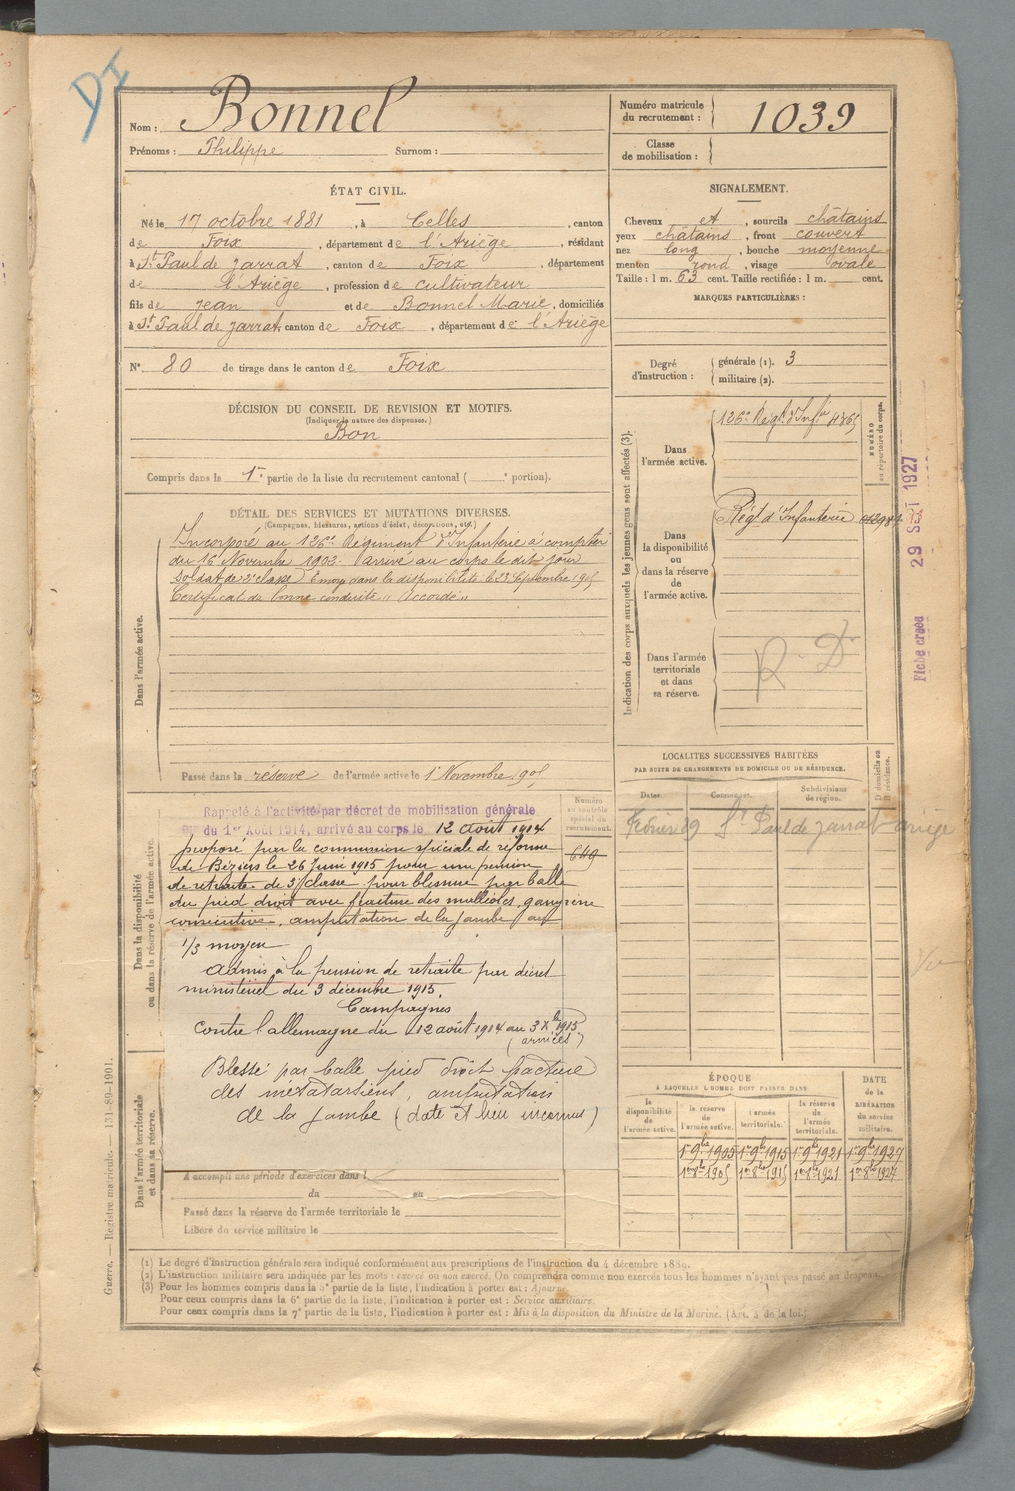 DI
Nom : Bonnel
Prénoms : Philippe Surnom :
Numéro matricule du recrutement : 1039
Classe de mobilisation :
ÉTAT CIVIL.
Né le 17 octobre 1881, à Celles, canton
de Foix, département de l'Ariège, résidant
à St Paul de Jarrat, canton de Foix, département
de l'Ariège, profession de cultivateur
fils de Jean et de Bonnel Marie, domiciliés
à St Paul de Jarrat canton de Foix, département de l'Ariège
N° 80 de tirage dans le canton de Foix
SIGNALEMENT.
Cheveux et, sourcils châtains
yeux châtains, front couvert
nez long, bouche moyenne
menton rond, visage ovale
Taille : 1 m. 63 cent. Taille rectifiée : 1 m. cent.
MARQUES PARTICULIÈRES :
Degré d'instruction : générale (1). 3
militaire (2).
DÉCISION DU CONSEIL DE REVISION ET MOTIFS.
(Indiquer la nature des dispenses.)
Bon
Compris dans la 1re partie de la liste du recrutement cantonal ( e portion).
DÉTAIL DES SERVICES ET MUTATIONS DIVERSES.
(Campagnes, blessures, actions d'éclat, décorations, etc.)
Dans l'armée active.
Incorporé au 126e Régiment d'Infanterie à compter
du 16 Novembre 1902. Arrivé au corps le dit jour
Soldat de 2e classe. Envoyé dans la disponibilité le 23 Septembre 1905
Certificat de bonne conduite "Accordé"
Passé dans la réserve de l'armée active le 1er Novembre 1905
Indication des corps auxquels les jeunes gens sont affectés (3).
Dans l'armée active.
126e Régt d'Infie
NUMÉRO au répertoire du corps.
Dans la disponibilité ou dans la réserve de l'armée active.
Régt d'Infanterie
Dans l'armée territoriale et dans sa réserve.
R. D.
29 SEPT 1927
Fiche créée
LOCALITÉS SUCCESSIVES HABITÉES
PAR SUITE DE CHANGEMENTS DE DOMICILE OU DE RÉSIDENCE.
Dates. Communes. Subdivisions de région. D domicile ou R résidence.
St Paul de Jarrat Ariège
Dans la disponibilité ou dans la réserve de l'armée active.
Numéro au contrôle spécial du recrutement.
649
Rappelé à l'activité par décret de mobilisation générale
du 1er Août 1914, arrivé au corps le 12 août 1914
proposé par la commission spéciale de réforme
de Béziers le 26 Juin 1915 pour une pension
de retraite de 5e classe pour blessure par balle
du pied droit avec fracture des malléoles, gangrène
consécutive, amputation de la jambe au
1/3 moyen
Admis à la pension de retraite par décret
ministériel du 3 décembre 1915.
Campagnes
contre l'allemagne du 12 août 1914 au 3 Xbre 1915
(armées)
Blessé par balle pied droit facture
des métatarsiens, amputation
de la jambe (date et lieu inconnus)
Dans l'armée territoriale et dans sa réserve.
A accompli une période d'exercices dans l
du au
Passé dans la réserve de l'armée territoriale le
Libéré du service militaire le
ÉPOQUE
À LAQUELLE L'HOMME DOIT PASSER DANS
la disponibilité de l'armée active. la réserve de l'armée active. l'armée territoriale. la réserve de l'armée territoriale. DATE de la LIBÉRATION du service militaire.
1er 9bre 1905 1er 9bre 1915 1er 9bre 1921 1er 9bre 1927
1er 8bre 1905 1er 8bre 1915 1er 8bre 1921 1er 8bre 1927
(1) Le degré d'instruction générale sera indiqué conformément aux prescriptions de l'instruction du 4 décembre 1889.
(2) L'instruction militaire sera indiquée par les mots : exercé ou non exercé. On comprendra comme non exercés tous les hommes n'ayant pas passé au drapeau.
(3) Pour les hommes compris dans la 5e partie de la liste, l'indication à porter est : Ajourné.
Pour ceux compris dans la 6e partie de la liste, l'indication à porter est : Service auxiliaire.
Pour ceux compris dans la 7e partie de la liste, l'indication à porter est : Mis à la disposition du Ministre de la Marine. (Art. 5 de la loi.)
Guerre. — Registre matricule. — 131-89-1901.